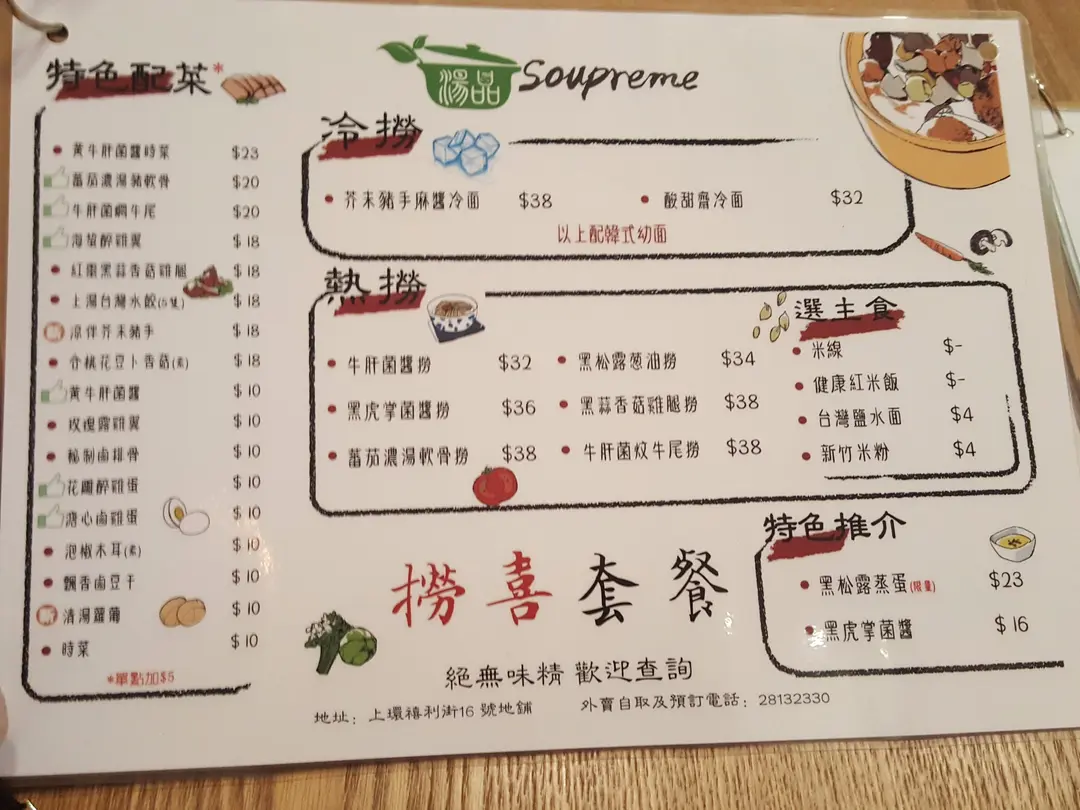 特色配菜*
黃牛肝菌醬時菜 $23
蕃茄濃湯豬軟骨 $20
牛肝菌燜牛尾 $20
海蜇醉雞翼 $18
紅棗黑蒜香菇雞腿 $18
上湯台灣水餃(5隻) $18
新 涼伴芥末豬手 $18
合桃花豆卜香菇(素) $18
黃牛肝菌醬 $10
玫瑰露雞翼 $10
秘制鹵排骨 $10
花雕醉雞蛋 $10
溏心鹵雞蛋 $10
泡椒木耳(素) $10
飄香鹵豆干 $10
新 清湯蘿蔔 $10
時菜 $10
*單點加$5
湯品 Soupreme
冷撈
芥末豬手麻醬冷面 $38
酸甜齋冷面 $32
以上配韓式幼面
熱撈
牛肝菌醬撈 $32
黑虎掌菌醬撈 $36
蕃茄濃湯軟骨撈 $38
黑松露葱油撈 $34
黑蒜香菇雞腿撈 $38
牛肝菌炆牛尾撈 $38
選主食
米線 $-
健康紅米飯 $-
台灣鹽水面 $4
新竹米粉 $4
撈喜套餐
特色推介
黑松露蒸蛋(限量) $23
黑虎掌菌醬 $16
絕無味精 歡迎查詢
地址：上環禧利街16 號地舖
外賣自取及預訂電話：28132330